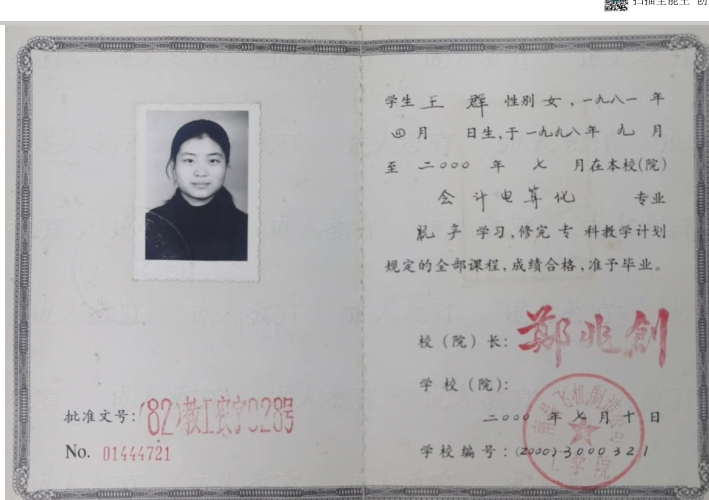 扫描全能王 创
学生 王 群 性别 女，一九八一 年
四 月 日生，于 一九九八 年 九 月
至 二〇〇〇 年 七 月在本校(院)
会计电算化 专业
脱产 学习，修完 专 科教学计划
规定的全部课程，成绩合格，准予毕业。
校（院）长：郑兆创
学 校（院）：
二〇〇〇 年 七 月 十 日
学校编号：(2000)3000321
批准文号：(82)教工农字028号
No. 01444721